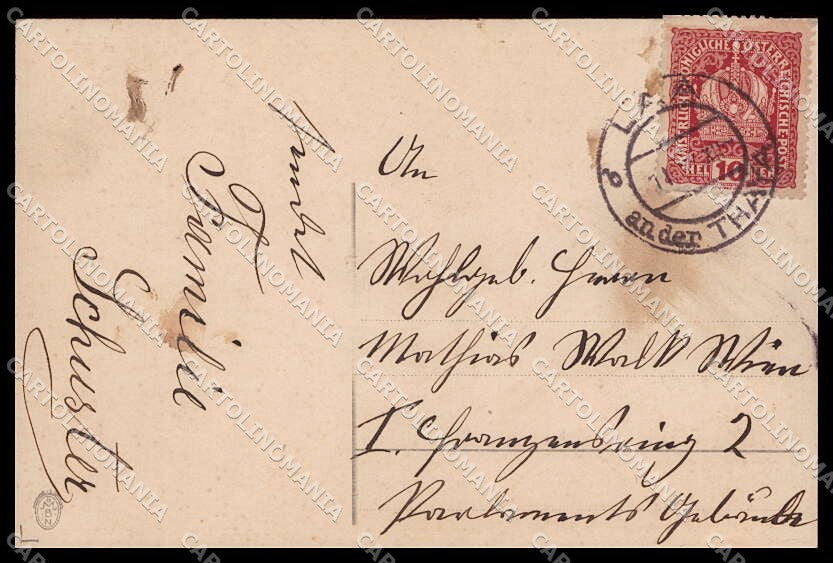 sendet
Familie
Schuster
An
Wohlgeb. Herrn
Mathias Walk Wien
I. Franzensring 2
Parlaments Gebäude
KAISERLICHE KÖNIGLICHE ÖSTERREICHISCHE POST
HELLER 10
an der THAYA
CARTOLINOMANIA